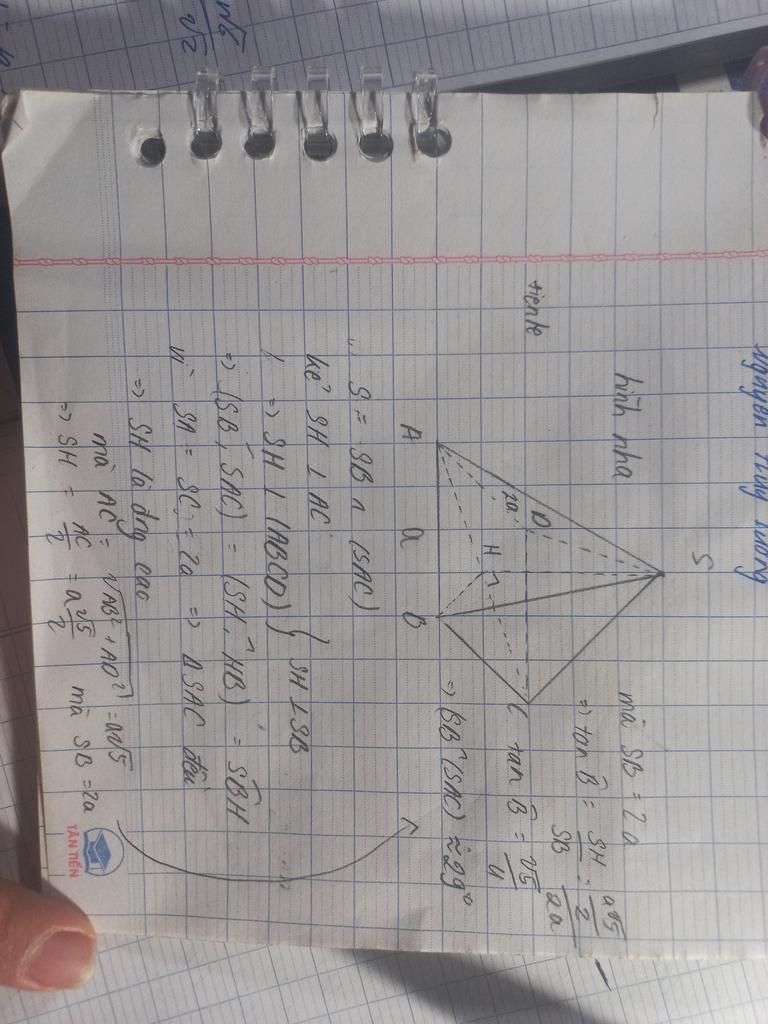 Nguyen Thuy Duong
hình nha
tiente
S
A
B
C
D
H
a
2a
S = SB ∩ (SAC)
kẻ SH ⊥ AC
=> SH ⊥ (ABCD) { SH ⊥ SB
=> (SB, SAC) = (SH, HB) = SBH
vì SA = SC = 2a => ΔSAC đều
=> SH là đg cao
mà AC = √AB² + AD² = a√5
=> SH = AC/2 = a√5/2 mà SB = 2a
mà SB = 2a
=> tan B̂ = SH/SB = a√5/2/2a
tan B̂ = √5/4
=> (SB, (SAC)) ≈ 29°
TÂN TIẾN
√2